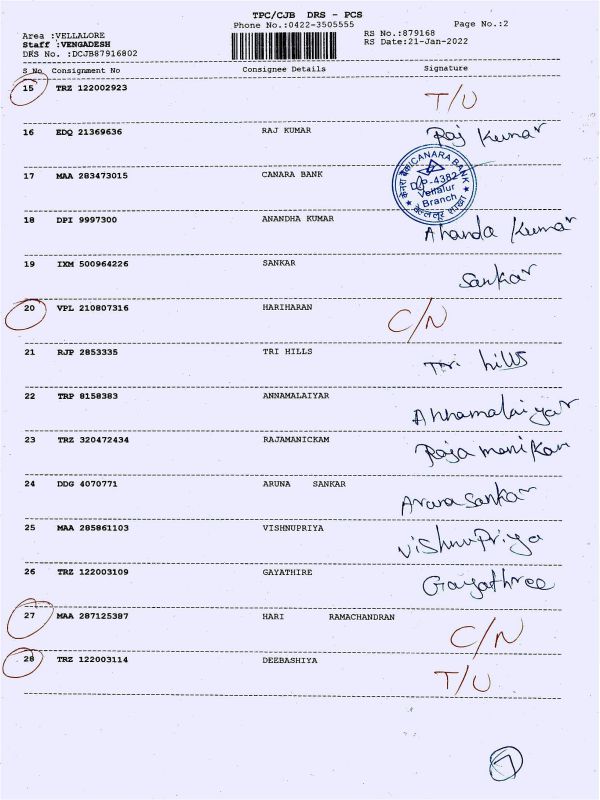 TPC/CJB DRS - PCS
Phone No.:0422-3505555 Page No.:2
Area :VELLALORE RS No.:879168
Staff :VENGADESH RS Date:21-Jan-2022
DRS No. :DCJB87916802
S No Consignment No Consignee Details Signature
15 TRZ 122002923 T/U
16 EDQ 21369636 RAJ KUMAR Raj Kumar
17 MAA 283473015 CANARA BANK
केनरा बैंक CANARA BANK
DP-4382
Vellalur
Branch
18 DPI 9997300 ANANDHA KUMAR Ahanda Kumar
19 IXM 500964226 SANKAR Sankar
20 VPL 210807316 HARIHARAN C/N
21 RJP 2853335 TRI HILLS Tri hills
22 TRP 8158383 ANNAMALAIYAR Ahhamalaiyar
23 TRZ 320472434 RAJAMANICKAM Raja manikan
24 DDG 4070771 ARUNA SANKAR Aruna Sankar
25 MAA 285861103 VISHNUPRIYA vishnupriya
26 TRZ 122003109 GAYATHIRE Gayathree
27 MAA 287125387 HARI RAMACHANDRAN C/N
28 TRZ 122003114 DEEBASHIYA T/U